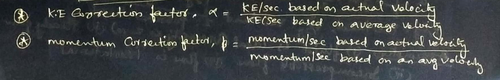 K.E Correction factor, α = KE/sec based on actual velocity
KE/sec based on average velocity
momentum Correction factor, β = momentum/sec based on actual velocity
momentum/sec based on an avg velocity